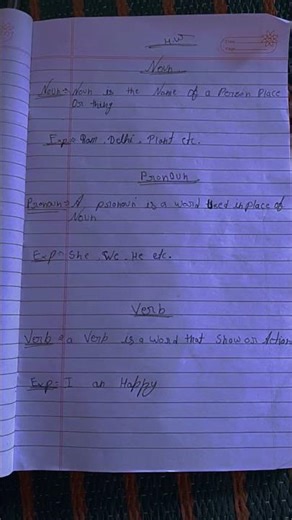 H.W
Noun
Noun = Noun is the Name of a Person Place
Or thing
Exp = Ram, Delhi, Plant etc.
Pronoun
Pronoun = A pronoun is a word Used in place of
Noun
Exp = She, We, He etc.
Verb
Verb = a Verb is a word that Show an Action
Exp = I am Happy